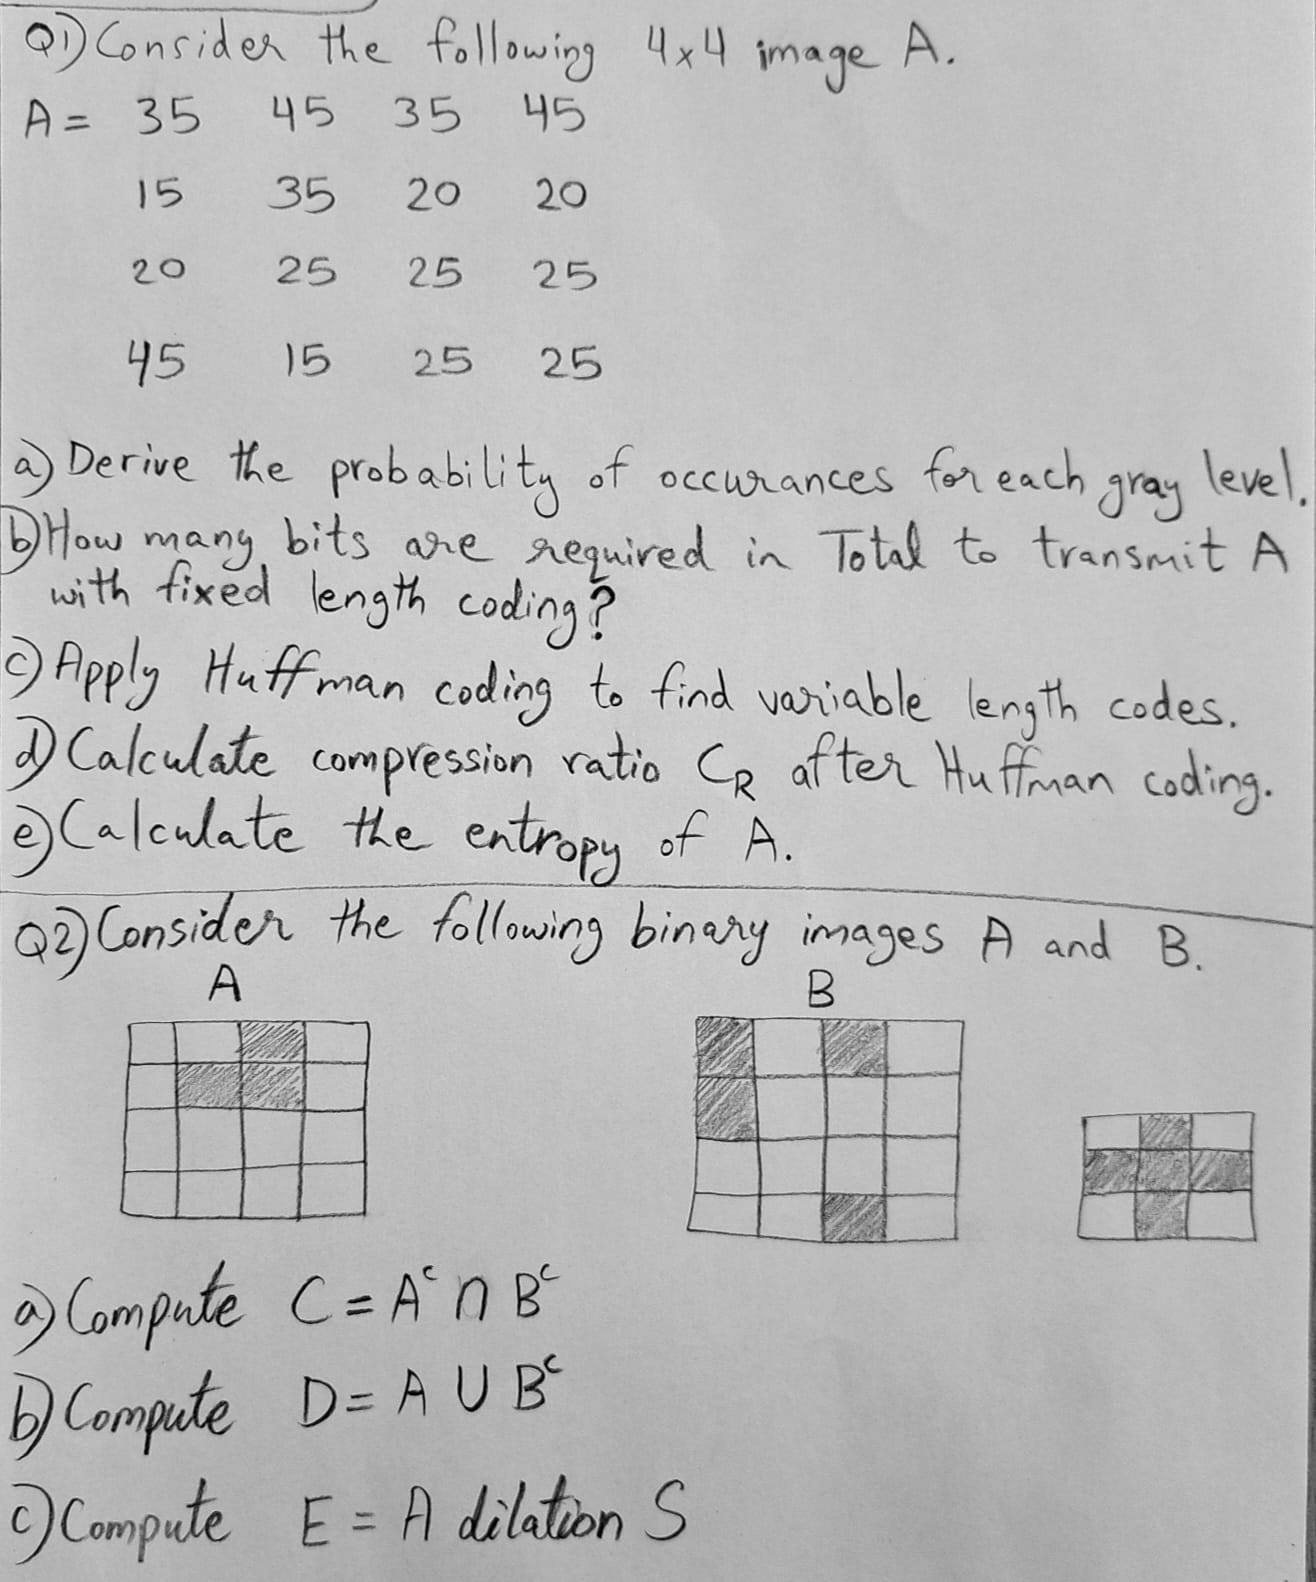 Q1) Consider the following 4x4 image A.
A = 35 45 35 45
15 35 20 20
20 25 25 25
45 15 25 25
a) Derive the probability of occurances for each gray level.
b) How many bits are required in Total to transmit A
with fixed length coding?
c) Apply Huffman coding to find variable length codes.
d) Calculate compression ratio CR after Huffman coding.
e) Calculate the entropy of A.
Q2) Consider the following binary images A and B.
A B
a) Compute C = Aᶜ ∩ Bᶜ
b) Compute D = A ∪ Bᶜ
c) Compute E = A dilation S